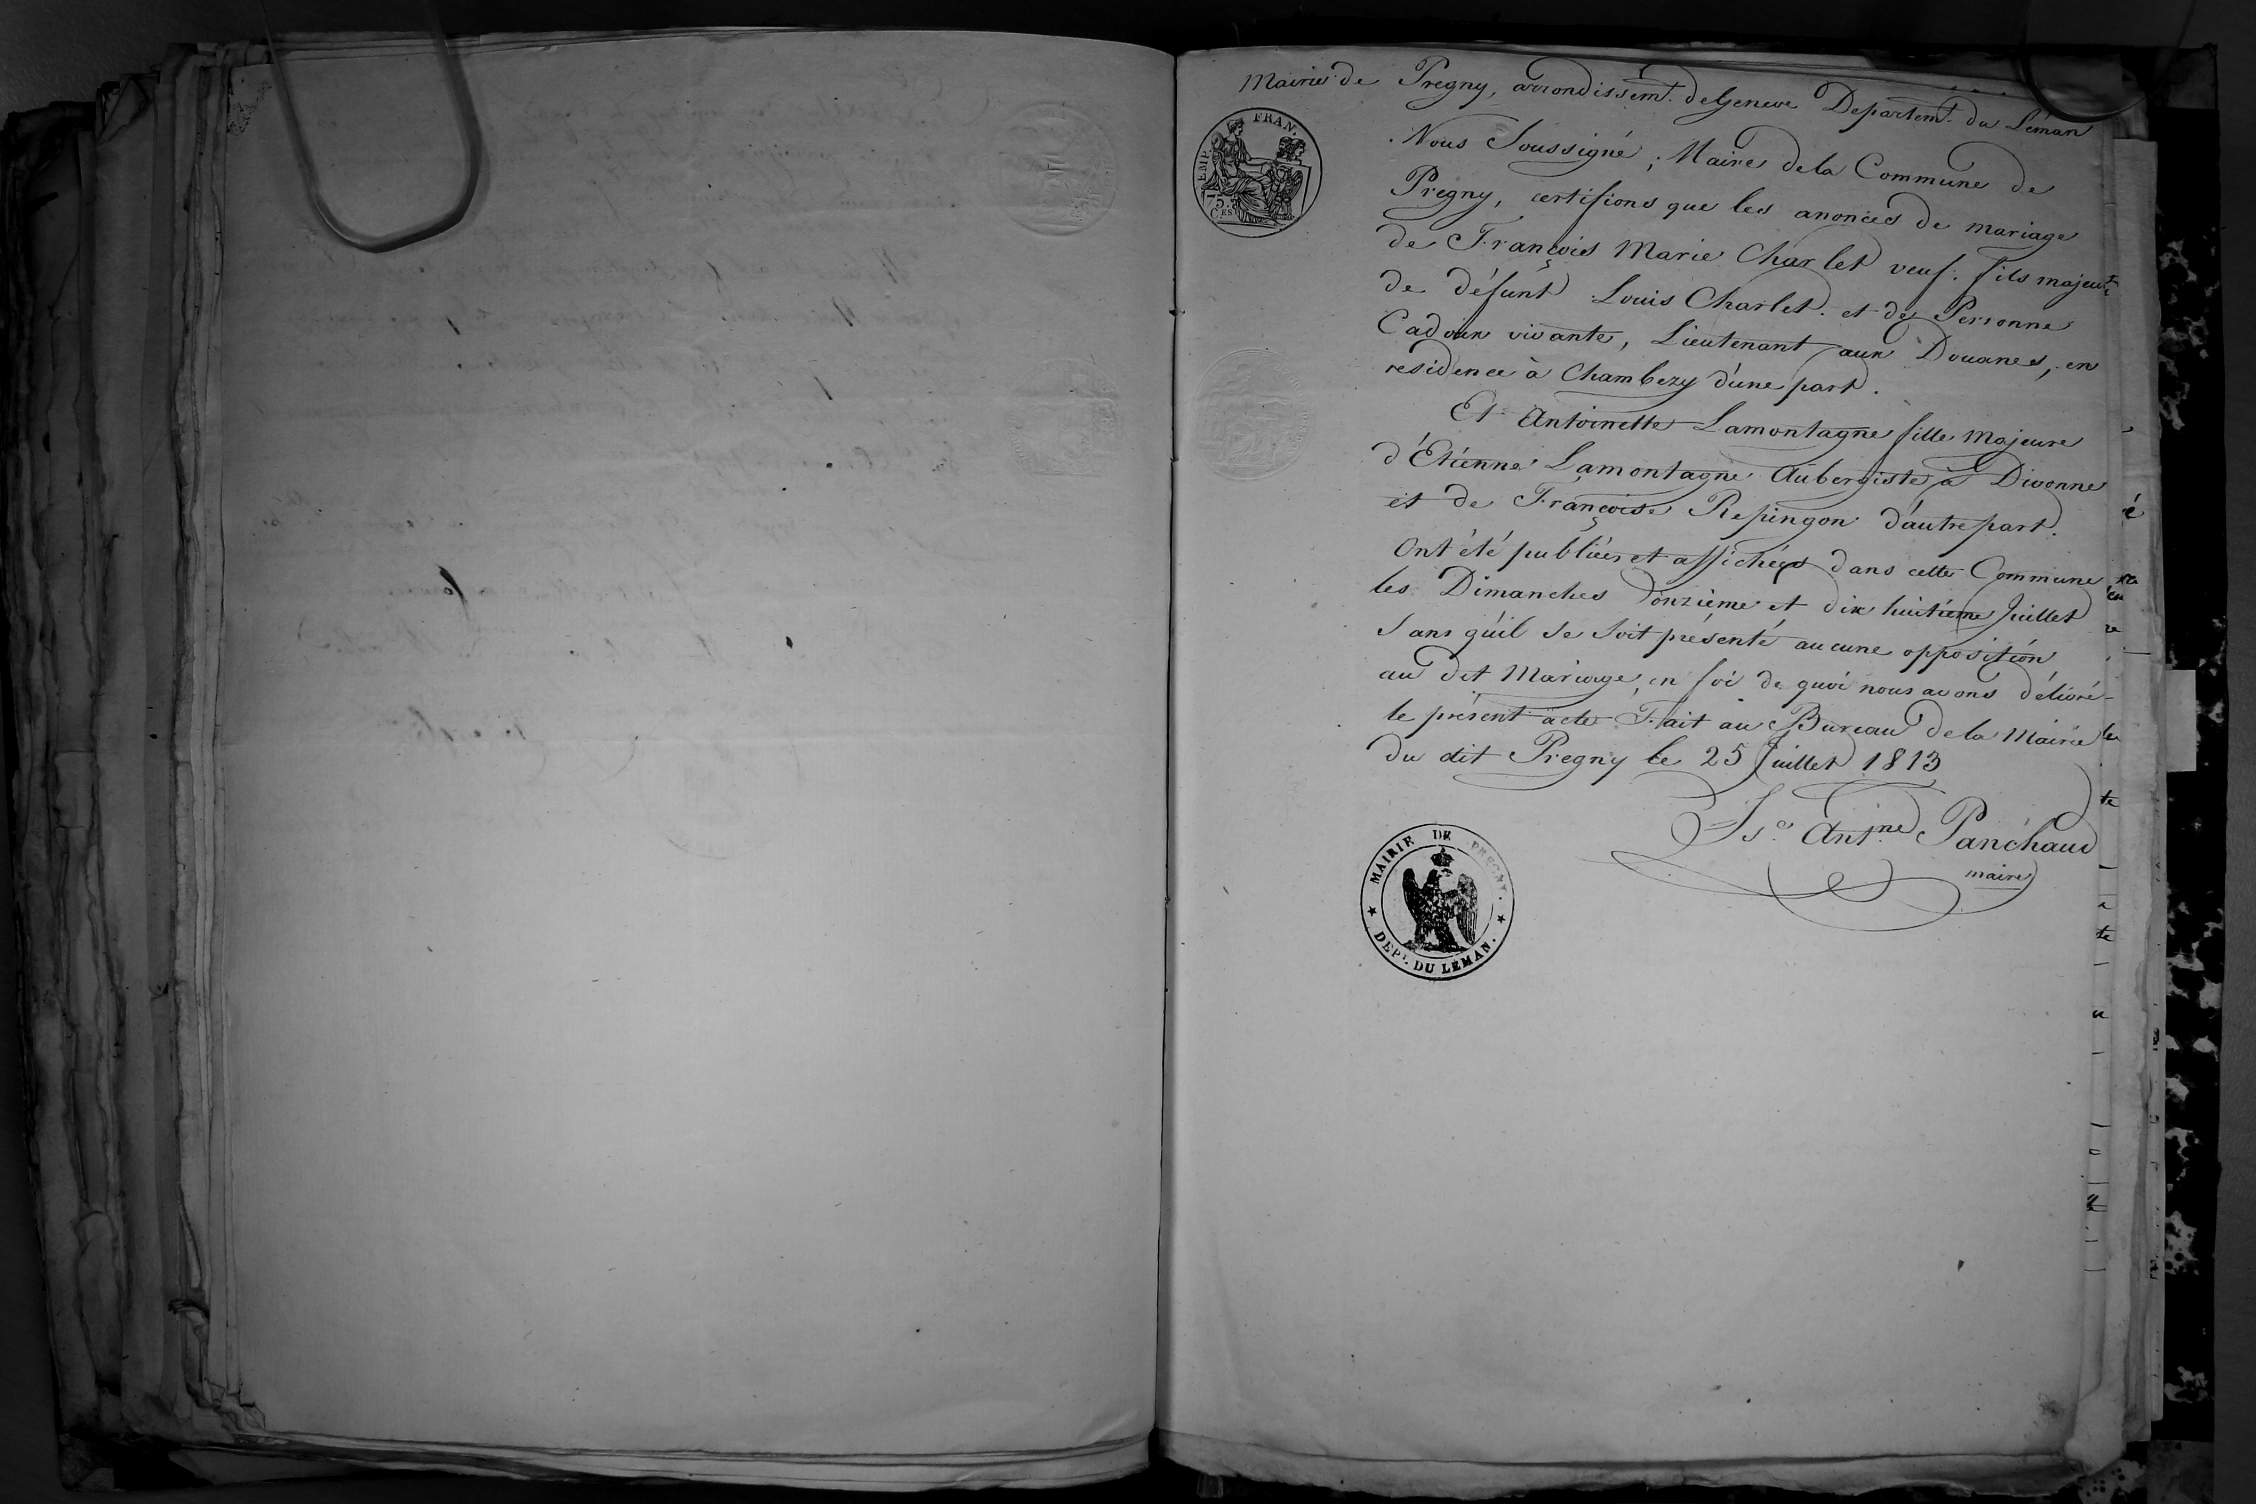 Mairie de Pregny, arrondissemt. de Geneve Departemt. du Léman
EMP. FRAN.
75.
CES
Nous Soussigné, Maire de la Commune de
Pregny, certifions que les anonces de mariage
de François Marie Charlet veuf. fils majeur
de défunt Louis Charlet. et de Peronne
Cadoux vivante, Lieutenant aux Douanes, en
residence à Chambezy d'une part.
Et Antoinette Lamontagne fille Majeure
d'Etienne Lamontagne Aubergiste à Divonne
et de Françoise Repingon d'autre part.
Ont été publiées et affichées dans cette Commune
les Dimanches onzième et dix huitième Juillet
Sans qu'il se soit présenté aucune opposition
au dit Mariage, en foi de quoi nous avons délivré
le présent acte Fait au Bureau de la Mairie
du dit Pregny le 25 Juillet 1813
Antne. Panchaud
maire
MAIRIE DE PREGNY.
DEPt. DU LÉMAN.